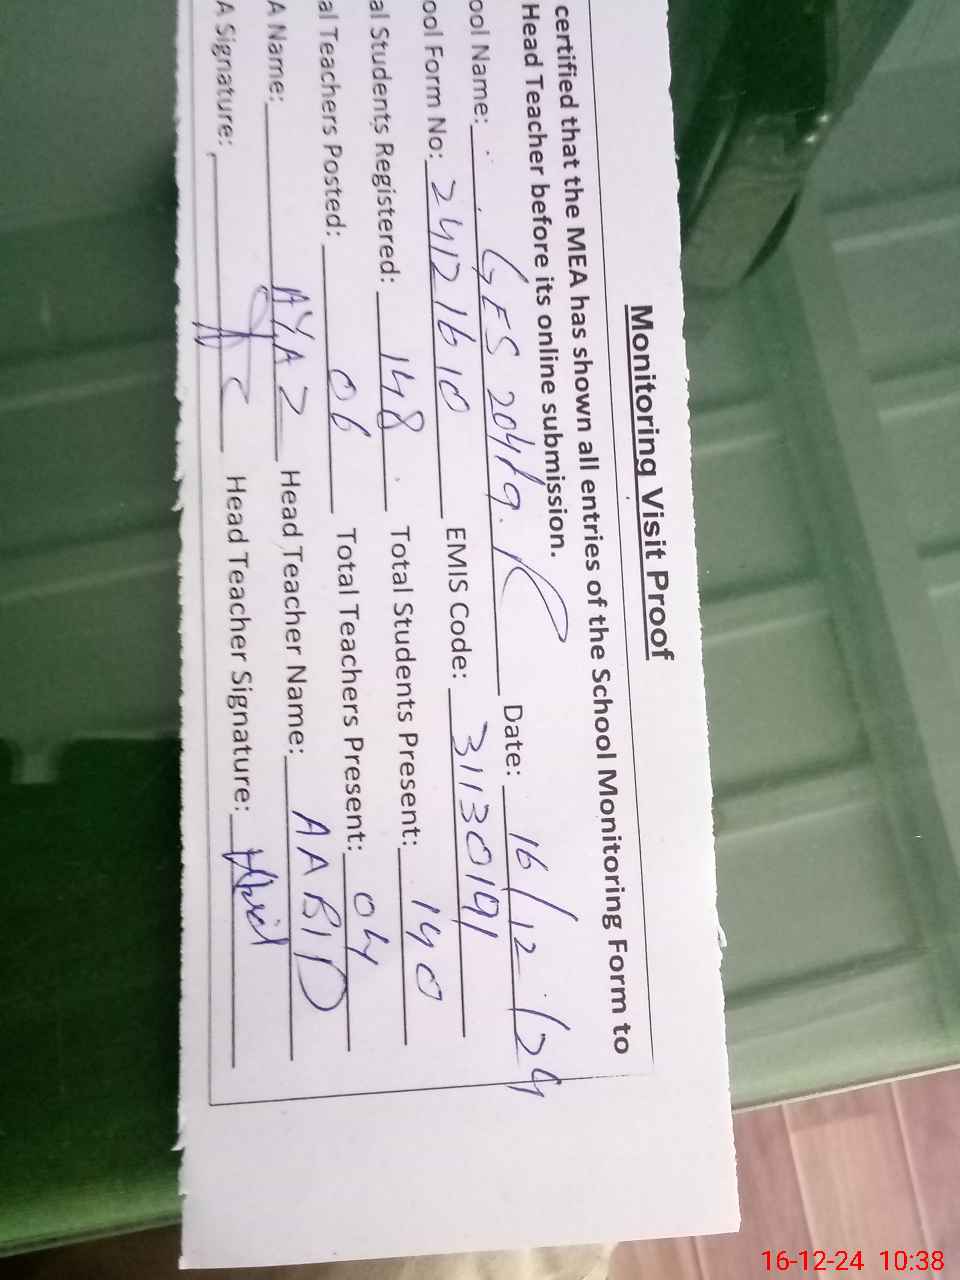 Monitoring Visit Proof
certified that the MEA has shown all entries of the School Monitoring Form to
Head Teacher before its online submission.
ool Name: GES 204/9.R Date: 16/12/24
ool Form No: 24121610 EMIS Code: 31130191
al Students Registered: 148 Total Students Present: 140
al Teachers Posted: 06 Total Teachers Present: 04
A Name: AYAZ Head Teacher Name: AABID
A Signature: Head Teacher Signature: Abid
16-12-24 10:38